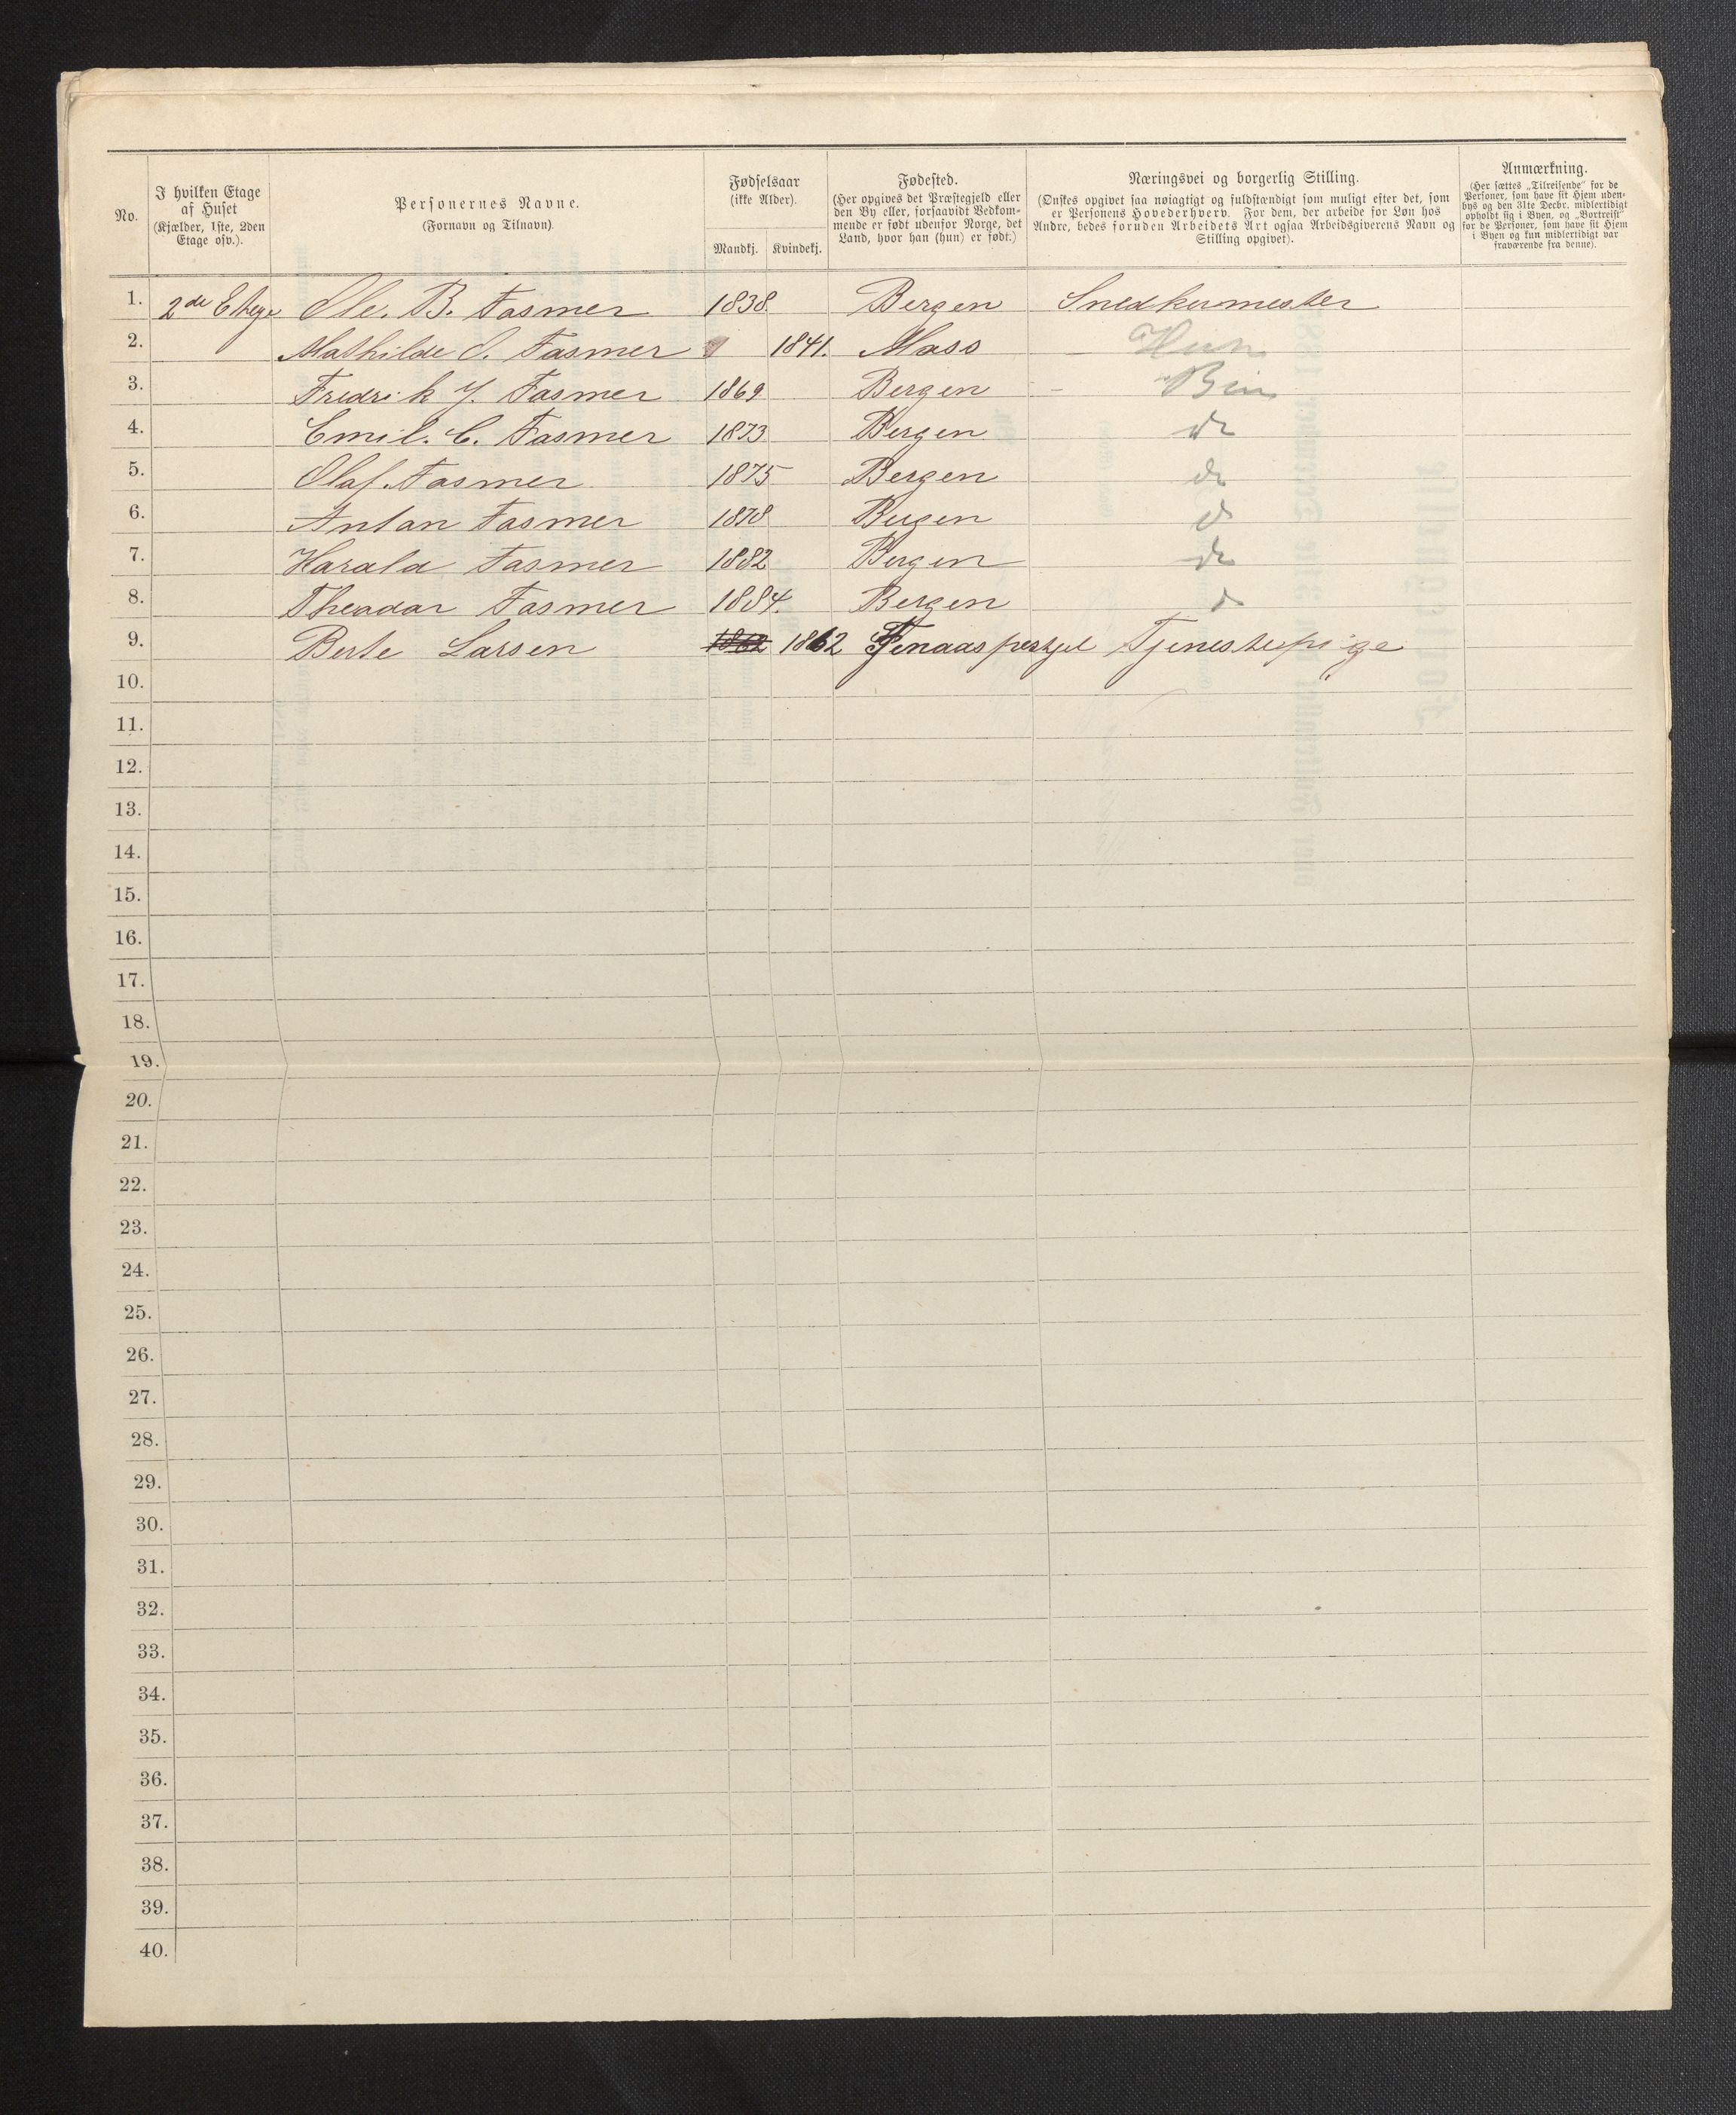 No.
I hvilken Etage
af Huset
(Kjælder, 1ste, 2den
Etage osv.).
Personernes Navne.
(Fornavn og Tilnavn).
Fødselsaar
(ikke Alder).
Mandkj. Kvindekj.
Fødested.
(Her opgives det Præstegjeld eller
den By eller, forsaavidt Vedkom-
mende er født udenfor Norge, det
Land, hvor han (hun) er født.)
Næringsvei og borgerlig Stilling.
(Ønskes opgivet saa nøiagtigt og fuldstændigt som muligt efter det, som
er Personens Hovederhverv. For dem, der arbeide for Løn hos
Andre, bedes foruden Arbeidets Art ogsaa Arbeidsgiverens Navn og
Stilling opgivet).
Anmærkning.
(Her sættes „Tilreisende“ for de
Personer, som have sit Hjem uden-
bys og den 31te Decbr. midlertidigt
opholdt sig i Byen, og „Bortreist“
for de Personer, som have sit Hjem
i Byen og kun midlertidigt var
fraværende fra denne).
1. 2de Etage Ole. B. Fasmer 1838. Bergen Snedkermester
2. Mathilde S. Fasmer 1841. Moss
3. Fredrik J. Fasmer 1869 Bergen
4. Emil. C. Fasmer 1873 Bergen do
5. Olaf. Fasmer 1875 Bergen do
6. Anton Fasmer 1878 Bergen do
7. Harald Fasmer 1882 Bergen do
8. Theodor Fasmer 1884. Bergen do
9. Berte Larsen 1862 1862 Tjenestepige
10.
11.
12.
13.
14.
15.
16.
17.
18.
19.
20.
21.
22.
23.
24.
25.
26.
27.
28.
29.
30.
31.
32.
33.
34.
35.
36.
37.
38.
39.
40.